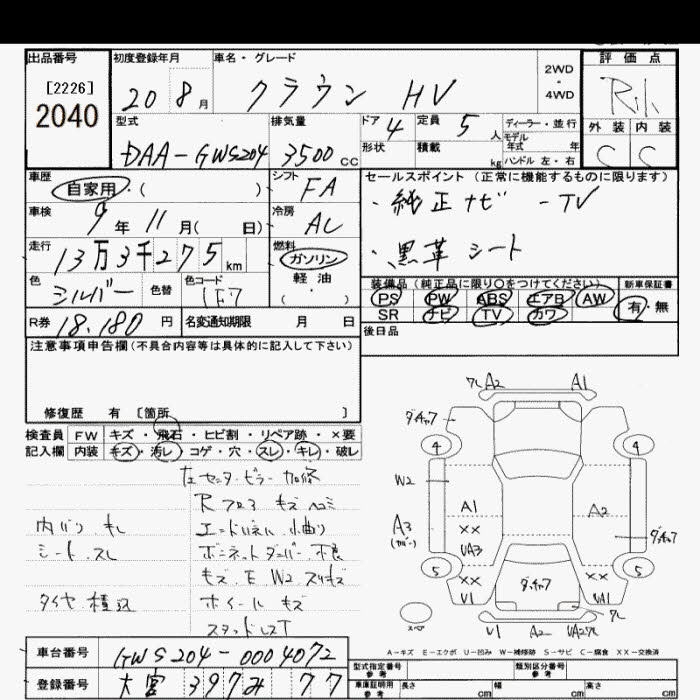 出品番号 初度登録年月 車名・グレード 評価点
[2226] 20 8月 クラウン HV 2WD・4WD
2040
型式 排気量 ドア 4 定員 5人 ディーラー・並行 外装 内装
DAA-GWS204 3500cc 形状 積載 kg モデル年式 年 C C
ハンドル 左・右
車歴 シフト セールスポイント(正常に機能するものに限ります)
自家用・( ) FA ・純正ナビ -TV
車検 9年 11月( 日) 冷房
走行 13万3千275km 燃料 ・黒革シート
ガソリン
軽油
( )
色 シルバー 色替 色コード 1F7 装備品(純正品に限り○をつけてください) 新車保証書
PS PW ABS エアB AW 有・無
SR ナビ TV カワ
R券 18.180円 名変通知期限 月 日 後日品
注意事項申告欄(不具合内容等は具体的に記入して下さい)
修復歴 有 [箇所 ]
検査員 FW キズ・飛石・ヒビ割・リペア跡・×要
記入欄 内装 キズ・汚レ・コゲ・穴・スレ・キレ・破レ
左センターピラー 加修
キズ ヘコミ
シート スレ
キズ E W2
タイヤ 積込 ホイール キズ
A2 A1
4 4
W2
A1 A2
A3 XX
UA3
5 XX XX 5
V1 UA1
V1 A2
A-キズ E-エクボ U-凹み W-補修跡 S-サビ C-腐食 XX-交換済
車台番号 GWS204-0004072
登録番号 大宮 397 み 77
型式指定番号 参考 類別区分番号 参考
車庫証明用 参考 長さ cm 幅 cm 高さ cm